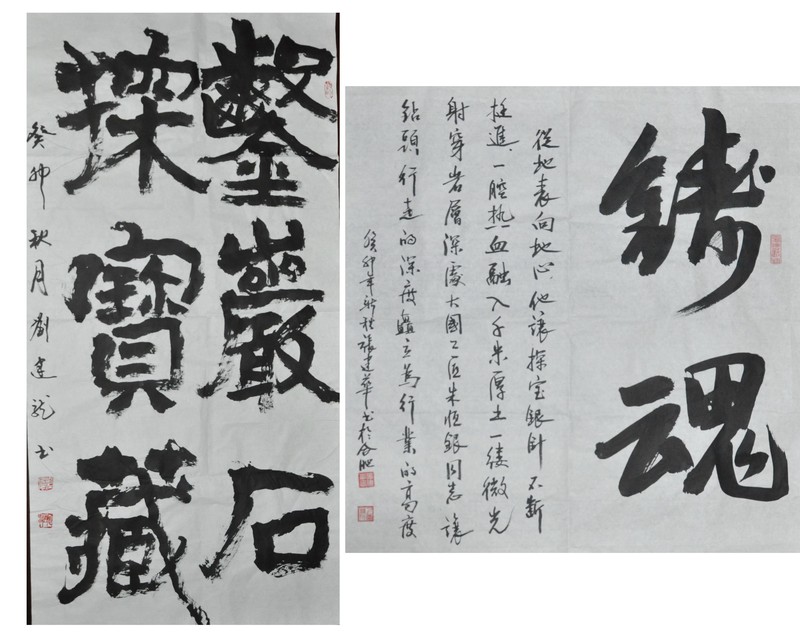 鑿巖石
探寶藏
癸卯秋月劉建龍书
鑄魂
從地表向地心他讓探宝銀針不斷
挺進一腔热血融入千米厚土一缕微光
射穿岩層深處大國工匠朱恒銀同志讓
鉆頭行走的深度矗立為行業的高度
癸卯年新秋張建華书於合肥